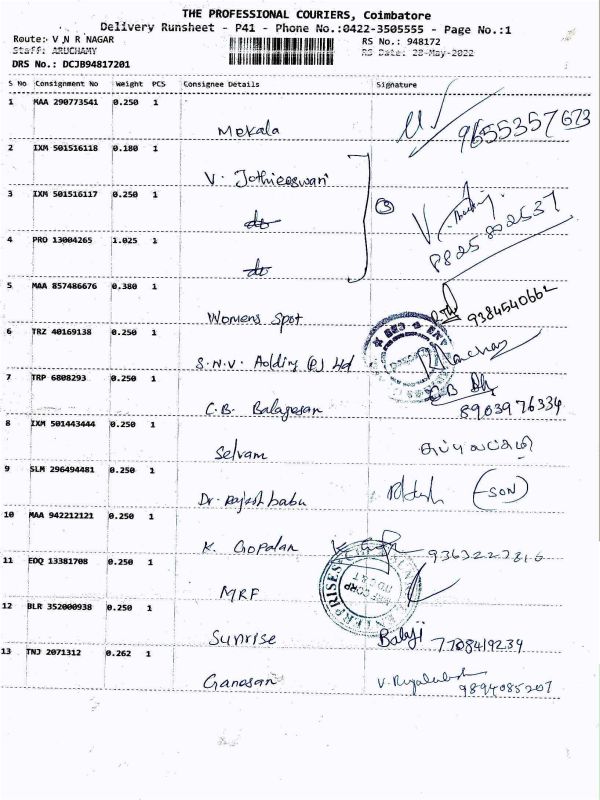 THE PROFESSIONAL COURIERS, Coimbatore
Delivery Runsheet - P41 - Phone No.:0422-3505555 - Page No.:1
Route: V N R NAGAR RS No.: 948172
Staff: ARUCHAMY RS Date: 28-May-2022
DRS No.: DCJB94817201
S No Consignment No Weight PCS Consignee Details Signature
1 MAA 290773541 0.250 1
Mekala 9655357673
2 IXM 501516118 0.180 1
V. Jothieeswari
3 IXM 501516117 0.250 1
do 3 V.
4 PRO 13004265 1.025 1
do
5 MAA 857486676 0.380 1
Womens Spot 9384540662
6 TRZ 40169138 0.250 1
S.N.V. Holding (P) Ltd
7 TRP 6808293 0.250 1
C.B. 8903976334
8 IXM 501443444 0.250 1
Selvam
9 SLM 296494481 0.250 1
Dr. Rajesh babu (SON)
10 MAA 942212121 0.250 1
K. Gopalan
11 EDQ 13381708 0.250 1
MRF
12 BLR 352000938 0.250 1
Sunrise Balaji 7708419239
13 TNJ 2071312 0.262 1
Ganesan 9894085207